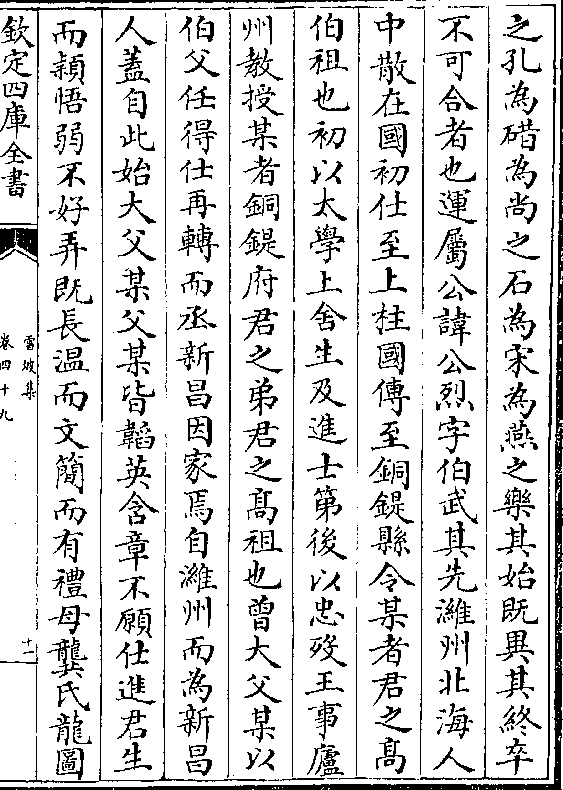 之孔為碏為尚之石為宋為燕之樂其始既異其終卒
不可合者也運屬公諱公烈字伯武其先濰州北海人
中散在國初仕至上柱國傳至銅鍉縣令某者君之髙
伯祖也初以太學上舍生及進士第後以忠歿王事廬
州教授某者銅鍉府君之弟君之髙祖也曾大父某以
伯父任得仕再轉而丞新昌因家焉自濰州而為新昌
人蓋自此始大父某父某皆韜英含章不願仕進君生
而穎悟弱不好弄既長温而文簡而有禮母龔氏龍圖
欽定四庫全書
雪坡集
卷四十九
十一